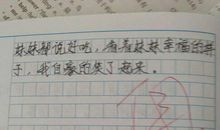 妹妹都说好吃，看着妹妹幸福的样
子，我自豪的笑了起来。